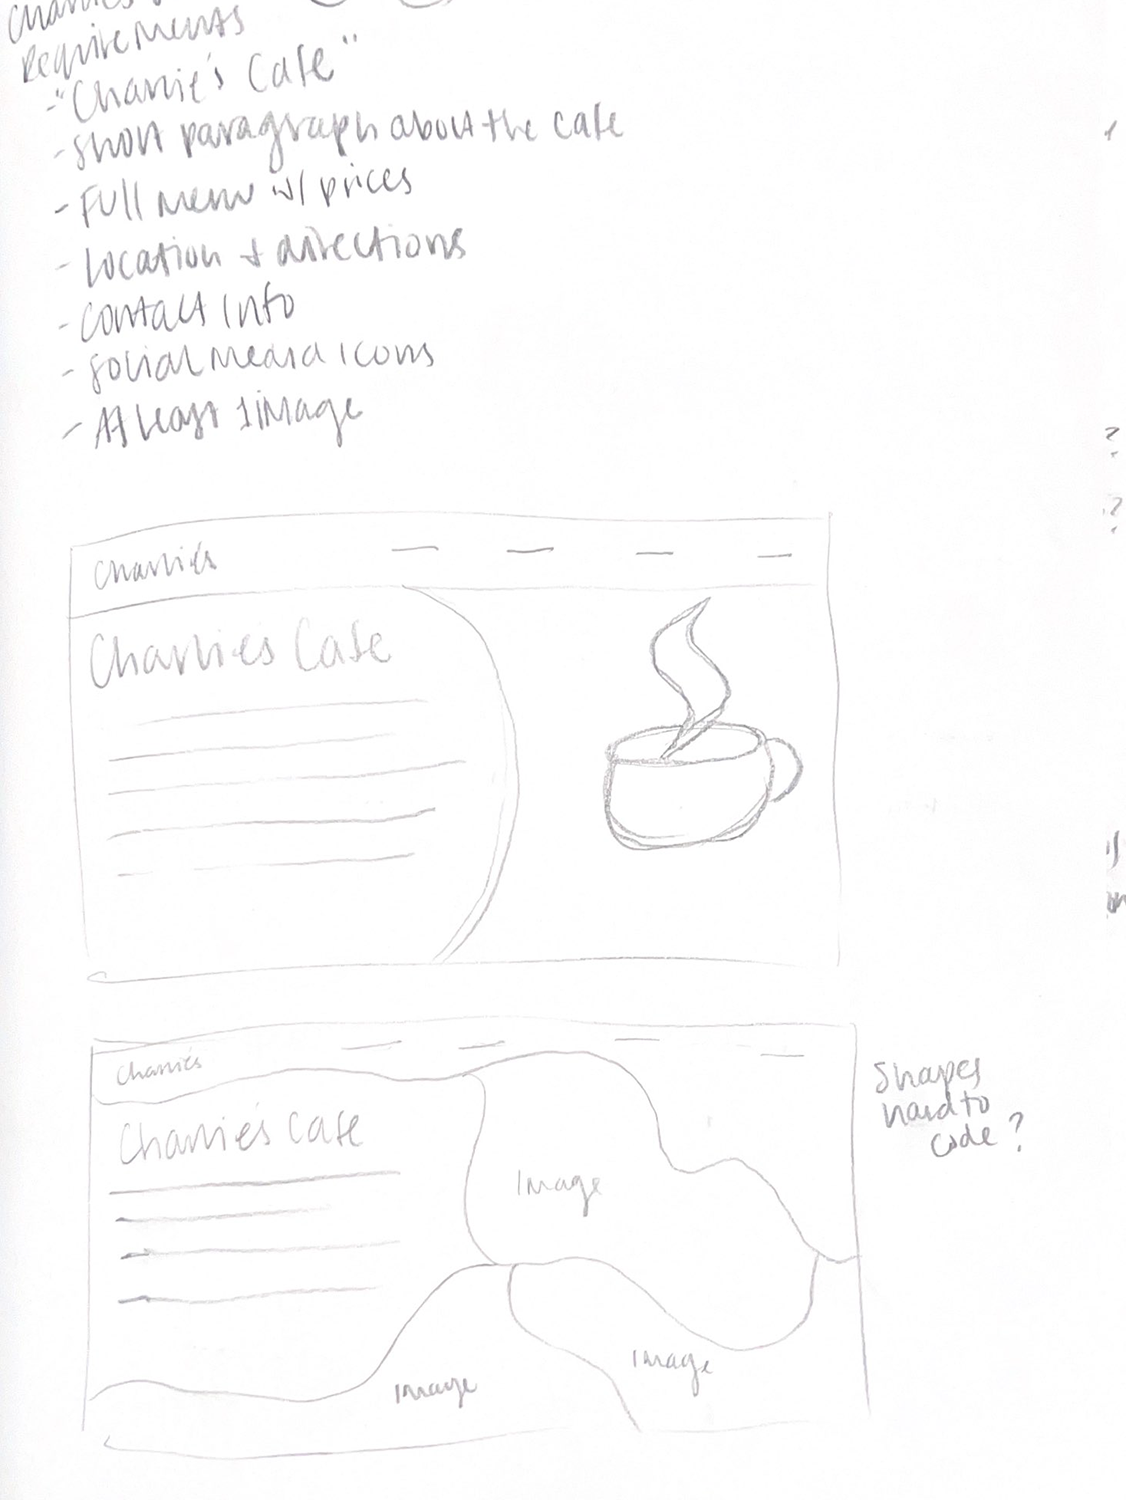 Requirements
- "Charlie's Cafe"
- Short paragraph about the cafe
- Full menu w/ prices
- Location + directions
- Contact Info
- Social media icons
- At least 1 image
Charlie's
Charlie's Cafe
Charlie's
Charlie's Cafe
Image
Image
Image
Shapes
hard to
code?